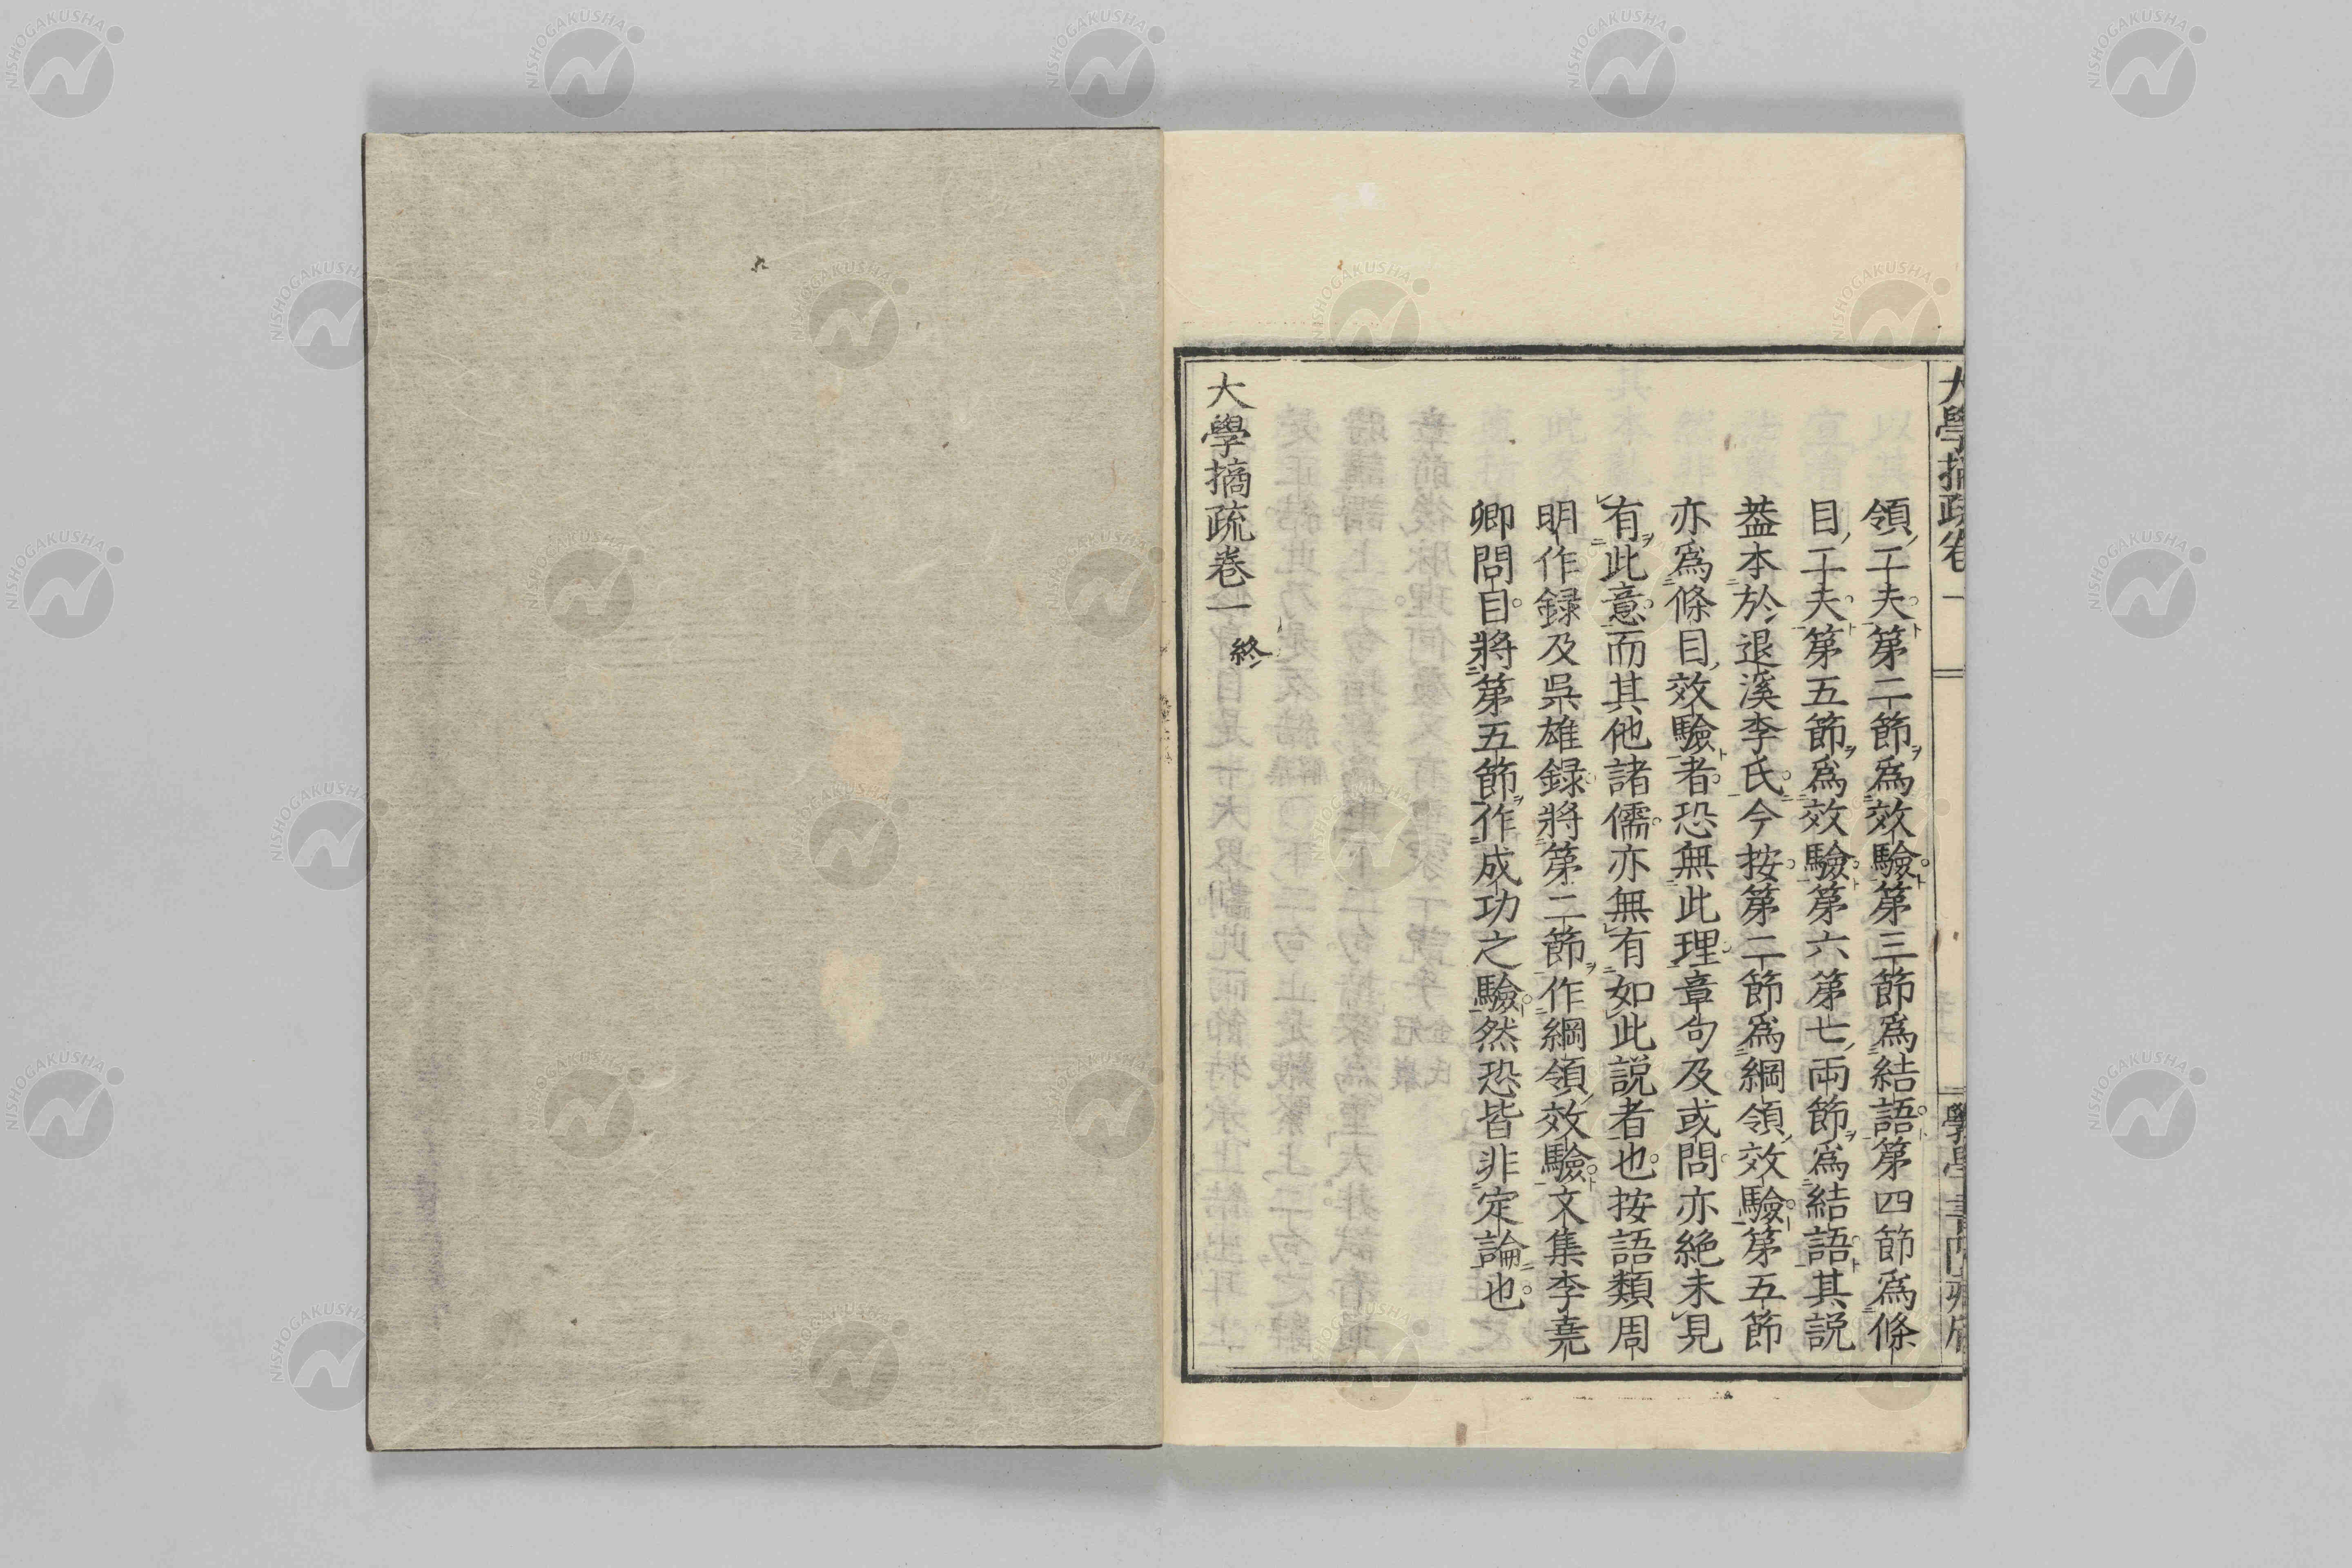 領工夫第二節爲效驗第三節爲結語第四節爲條
目工夫第五節爲效驗第六第七兩節爲結語其説
葢本於退溪李氏今按第二節爲綱領效驗第五節
亦爲條目效驗者恐無此理章句及或問亦絶未見
有此意而其他諸儒亦無有如此説者也按語類周
明作録及吳雄録將第二節作綱領效驗文集李堯
卿問目將第五節作成功之驗然恐皆非定論也
大學摘疏卷一 終